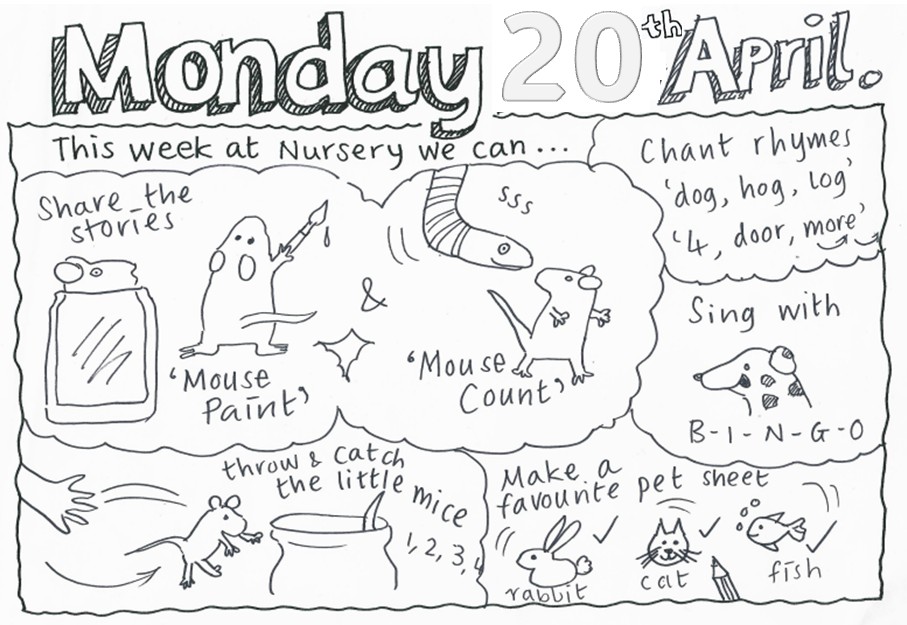 Monday 20th April.
This week at Nursery we can...
Share the
stories
'Mouse
Paint'
&
sss
'Mouse
Count'
Chant rhymes
'dog, hog, log'
'4, door, more'
Sing with
B-I-N-G-O
throw & catch
the little mice
1, 2, 3, 4
Make a
favourite pet sheet
rabbit
cat
fish